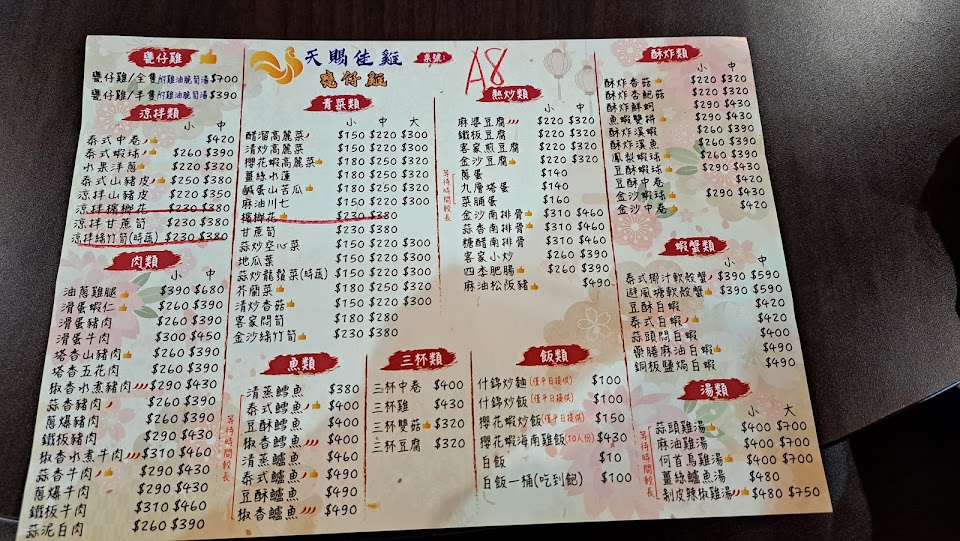 甕仔雞
甕仔雞/全隻附雞油脆筍湯$700
甕仔雞/半隻附雞油脆筍湯$390
涼拌類
小 中
泰式中卷 $420
泰式蝦球 $260 $390
水果洋蔥 $220 $320
泰式山豬皮 $250 $380
涼拌山豬皮 $220 $350
涼拌檳榔花 $230 $380
涼拌甘蔗筍 $230 $380
涼拌綠竹筍(時蔬) $230 $380
肉類
小 中
油蔥雞腿 $390 $680
滑蛋蝦仁 $260 $390
滑蛋豬肉 $260 $390
滑蛋牛肉 $300 $450
塔香山豬肉 $260 $390
塔香五花肉 $260 $390
椒香水煮豬肉 $290 $430
蒜香豬肉 $260 $390
蔥爆豬肉 $260 $390
鐵板豬肉 $290 $430
椒香水煮牛肉 $310 $460
蒜香牛肉 $290 $430
蔥爆牛肉 $290 $430
鐵板牛肉 $310 $460
蒜泥白肉 $260 $390
天賜佳雞
甕仔雞
桌號:
A8
青菜類
小 中 大
醋溜高麗菜 $150 $220 $300
清炒高麗菜 $150 $220 $300
櫻花蝦高麗菜 $180 $250 $320
薑絲水蓮 $180 $250 $320
鹹蛋山苦瓜 $180 $250 $320
麻油川七 $150 $220 $300
檳榔花 $230 $380
甘蔗筍 $230 $380
蒜炒空心菜 $150 $220 $300
地瓜葉 $150 $220 $300
蒜炒龍鬚菜(時蔬) $150 $220 $300
芥蘭菜 $150 $220 $300
清炒香菇 $150 $220 $300
客家悶筍 $180 $280
金沙綠竹筍 $230 $380
熱炒類
小 中
麻婆豆腐 $220 $320
鐵板豆腐 $220 $320
客家煎豆腐 $220 $320
金沙豆腐 $220 $320
蔥蛋 $140
九層塔蛋 $140
菜脯蛋 $160
金沙南排骨 $310 $460
蒜香南排骨 $310 $460
糖醋南排骨 $310 $460
客家小炒 $260 $390
四季肥腸 $260 $390
麻油松阪豬 $490
等待時間較長
魚類
清蒸鱈魚 $380
泰式鱈魚 $400
豆酥鱈魚 $400
椒香鱈魚 $400
清蒸鱸魚 $460
泰式鱸魚 $490
豆酥鱸魚 $490
椒香鱸魚 $490
等待時間較長
三杯類
三杯中卷 $400
三杯雞 $430
三杯雙菇 $320
三杯豆腐 $320
飯類
什錦炒麵(僅平日提供) $100
什錦炒飯(僅平日提供) $100
櫻花蝦炒飯(僅平日提供) $150
櫻花蝦海南雞飯(10人份) $430
白飯 $10
白飯一桶(吃到飽) $100
酥炸類
小 中
酥炸香菇 $220 $320
酥炸杏鮑菇 $220 $320
酥炸鮮蚵 $290 $430
魚蝦雙拼 $290 $430
酥炸溪蝦 $260 $390
酥炸溪魚 $260 $390
鳳梨蝦球 $260 $390
豆酥蝦球 $290 $430
豆酥中卷 $420
金沙蝦球 $290 $430
金沙中卷 $420
蝦蟹類
小 中
泰式椰汁軟殼蟹 $390 $590
避風塘軟殼蟹 $390 $590
豆酥白蝦 $420
泰式白蝦 $420
蒜頭悶白蝦 $400
藥膳麻油白蝦 $490
銅板鹽焗白蝦 $490
湯類
小 大
蒜頭雞湯 $400 $700
麻油雞湯 $400 $700
何首烏雞湯 $400 $700
薑絲鱸魚湯 $480
剝皮辣椒雞湯 $480 $750
等待時間較長